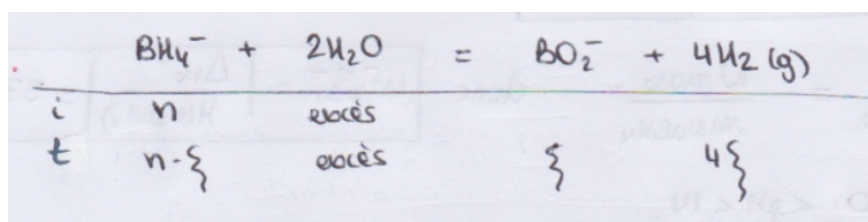 BH₄⁻ + 2H₂O = BO₂⁻ + 4H₂(g)
i n excès
t n-ξ excès ξ 4ξ